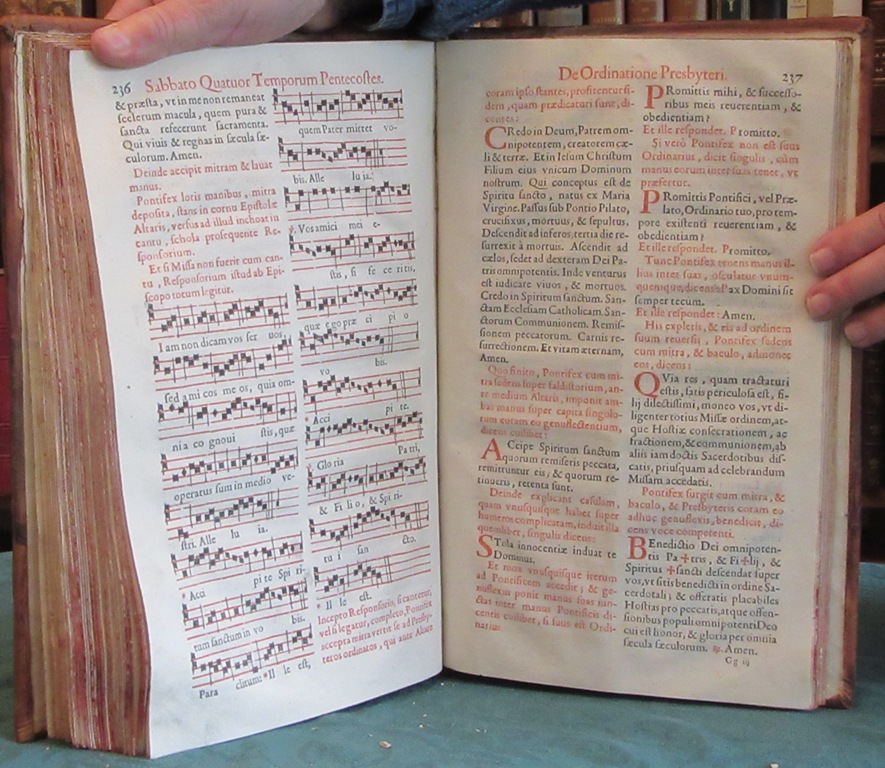 236 Sabbato Quatuor Temporum Pentecostes.
& præsta, vt in me non remaneat
scelerum macula, quem pura &
sancta refecerunt sacramenta.
Qui viuis & regnas in sæcula sæ-
culorum. Amen.
Deinde accipit mitram & lauat
manus.
Pontifex lotis manibus, mitra
deposita, stans in cornu Epistolæ
Altaris, versus ad illud inchoat in
cantu, schola prosequente Re-
sponsorium.
Et si Missa non fuerit cum can-
tu, Responsorium istud ab Epi-
scopo totum legitur.
I am non dicam vos ser uos,
sed ami cos me os, quia om-
nia co gnoui stis, quæ
operatus sum in medio ve-
stri. Alle lu ia.
* Acci pi te Spi ri-
tum sanctum in vo bis.
Para clitum: * Il le est,
quem Pater mittet vo-
bis. Alle lu ia.
℣. Vos amici mei e-
stis, si fe ce ritis,
quæ ego præ ci pi o
vo bis.
* Acci pi te.
℣. Glo ria Pa tri,
& Fi li o, & Spi ri-
tu i san cto.
* Il le est.
Incepto Responsorio, si cantetur,
vel si legatur, completo, Pontifex
accepta mitra vertit se ad Presby-
teros ordinatos, qui ante Altare
De Ordinatione Presbyteri. 237
coram ipso stantes, profitentur fi-
dem, quam prædicaturi sunt, di-
centes:
CRedo in Deum, Patrem om-
nipotentem, creatorem cæ-
li & terræ. Et in Iesum Christum
Filium eius vnicum Dominum
nostrum. Qui conceptus est de
Spiritu sancto, natus ex Maria
Virgine. Passus sub Pontio Pilato,
crucifixus, mortuus, & sepultus.
Descendit ad inferos, tertia die re-
surrexit à mortuis. Ascendit ad
cælos, sedet ad dexteram Dei Pa-
tris omnipotentis. Inde venturus
est iudicare viuos, & mortuos.
Credo in Spiritum sanctum. San-
ctam Ecclesiam Catholicam. San-
ctorum Communionem. Remis-
sionem peccatorum. Carnis re-
surrectionem. Et vitam æternam,
Amen.
Quo finito, Pontifex cum mi-
tra sedens super faldistorium, an-
te medium Altaris, imponit am-
bas manus super capita singulo-
rum coram eo genuflectentium,
dicens cuilibet:
ACcipe Spiritum sanctum
quorum remiseris peccata,
remittuntur eis; & quorum re-
tinueris, retenta sunt.
Deinde explicans casulam,
quam vnusquisque habet super
humeros complicatam, induit illa
quemlibet, singulis dicens:
STola innocentiæ induat te
Dominus.
Et mox vnusquisque iterum
ad Pontificem accedit; & ge-
nuflexus ponit manus suas iun-
ctas inter manus Pontificis di-
centis cuilibet, si suus est Ordi-
narius
PRomittis mihi, & successo-
ribus meis reuerentiam, &
obedientiam?
Et ille respondet. Promitto.
Si verò Pontifex non est suus
Ordinarius, dicit singulis, cùm
manus eorum inter suas tenet, vt
præfertur.
PRomittis Pontifici, vel Præ-
lato, Ordinario tuo, pro tem-
pore existenti reuerentiam, &
obedientiam?
Et ille respondet. Promitto.
Tunc Pontifex tenens manus il-
lius inter suas, osculatur vnum-
quemque, dicens: Pax Domini sit
semper tecum.
Et ille respondet: Amen.
His expletis, & eis ad ordinem
suum reuersis, Pontifex sedens
cum mitra, & baculo, admonet
eos, dicens:
QVia res, quam tractaturi
estis, satis periculosa est, fi-
lij dilectissimi, moneo vos, vt di-
ligenter totius Missæ ordinem, at-
que Hostiæ consecrationem, ac
fractionem, & communionem, ab
aliis iam doctis Sacerdotibus dis-
catis, priusquam ad celebrandum
Missam accedatis.
Pontifex surgit cum mitra, &
baculo, & Presbyteris coram eo
adhuc genuflexis, benedicit, di-
cens voce competenti.
BEnedictio Dei omnipoten-
tis Pa✠tris, & Fi✠lij, &
Spiritus ✠ sancti descendat super
vos, vt sitis benedicti in ordine Sa-
cerdotali; & offeratis placabiles
Hostias pro peccatis, atque offen-
sionibus populi omnipotenti Deo
cui est honor, & gloria per omnia
sæcula sæculorum. ℟. Amen.
Gg iij